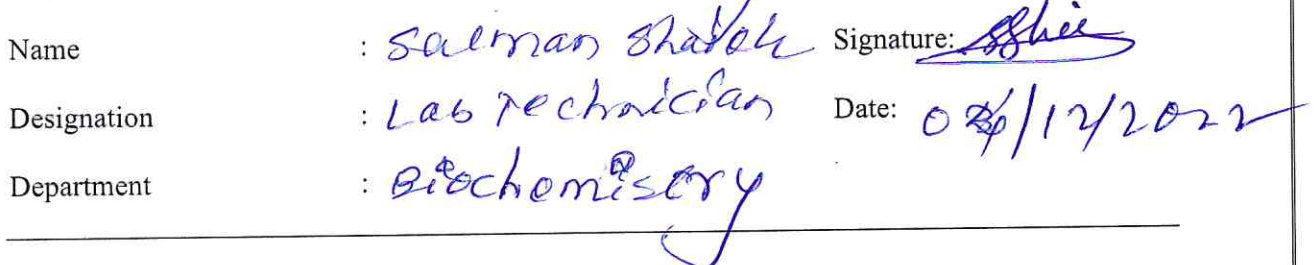 Name : Salman Shaikh Signature:
Designation : Lab Technician Date: /12/2022
Department : Biochemistry